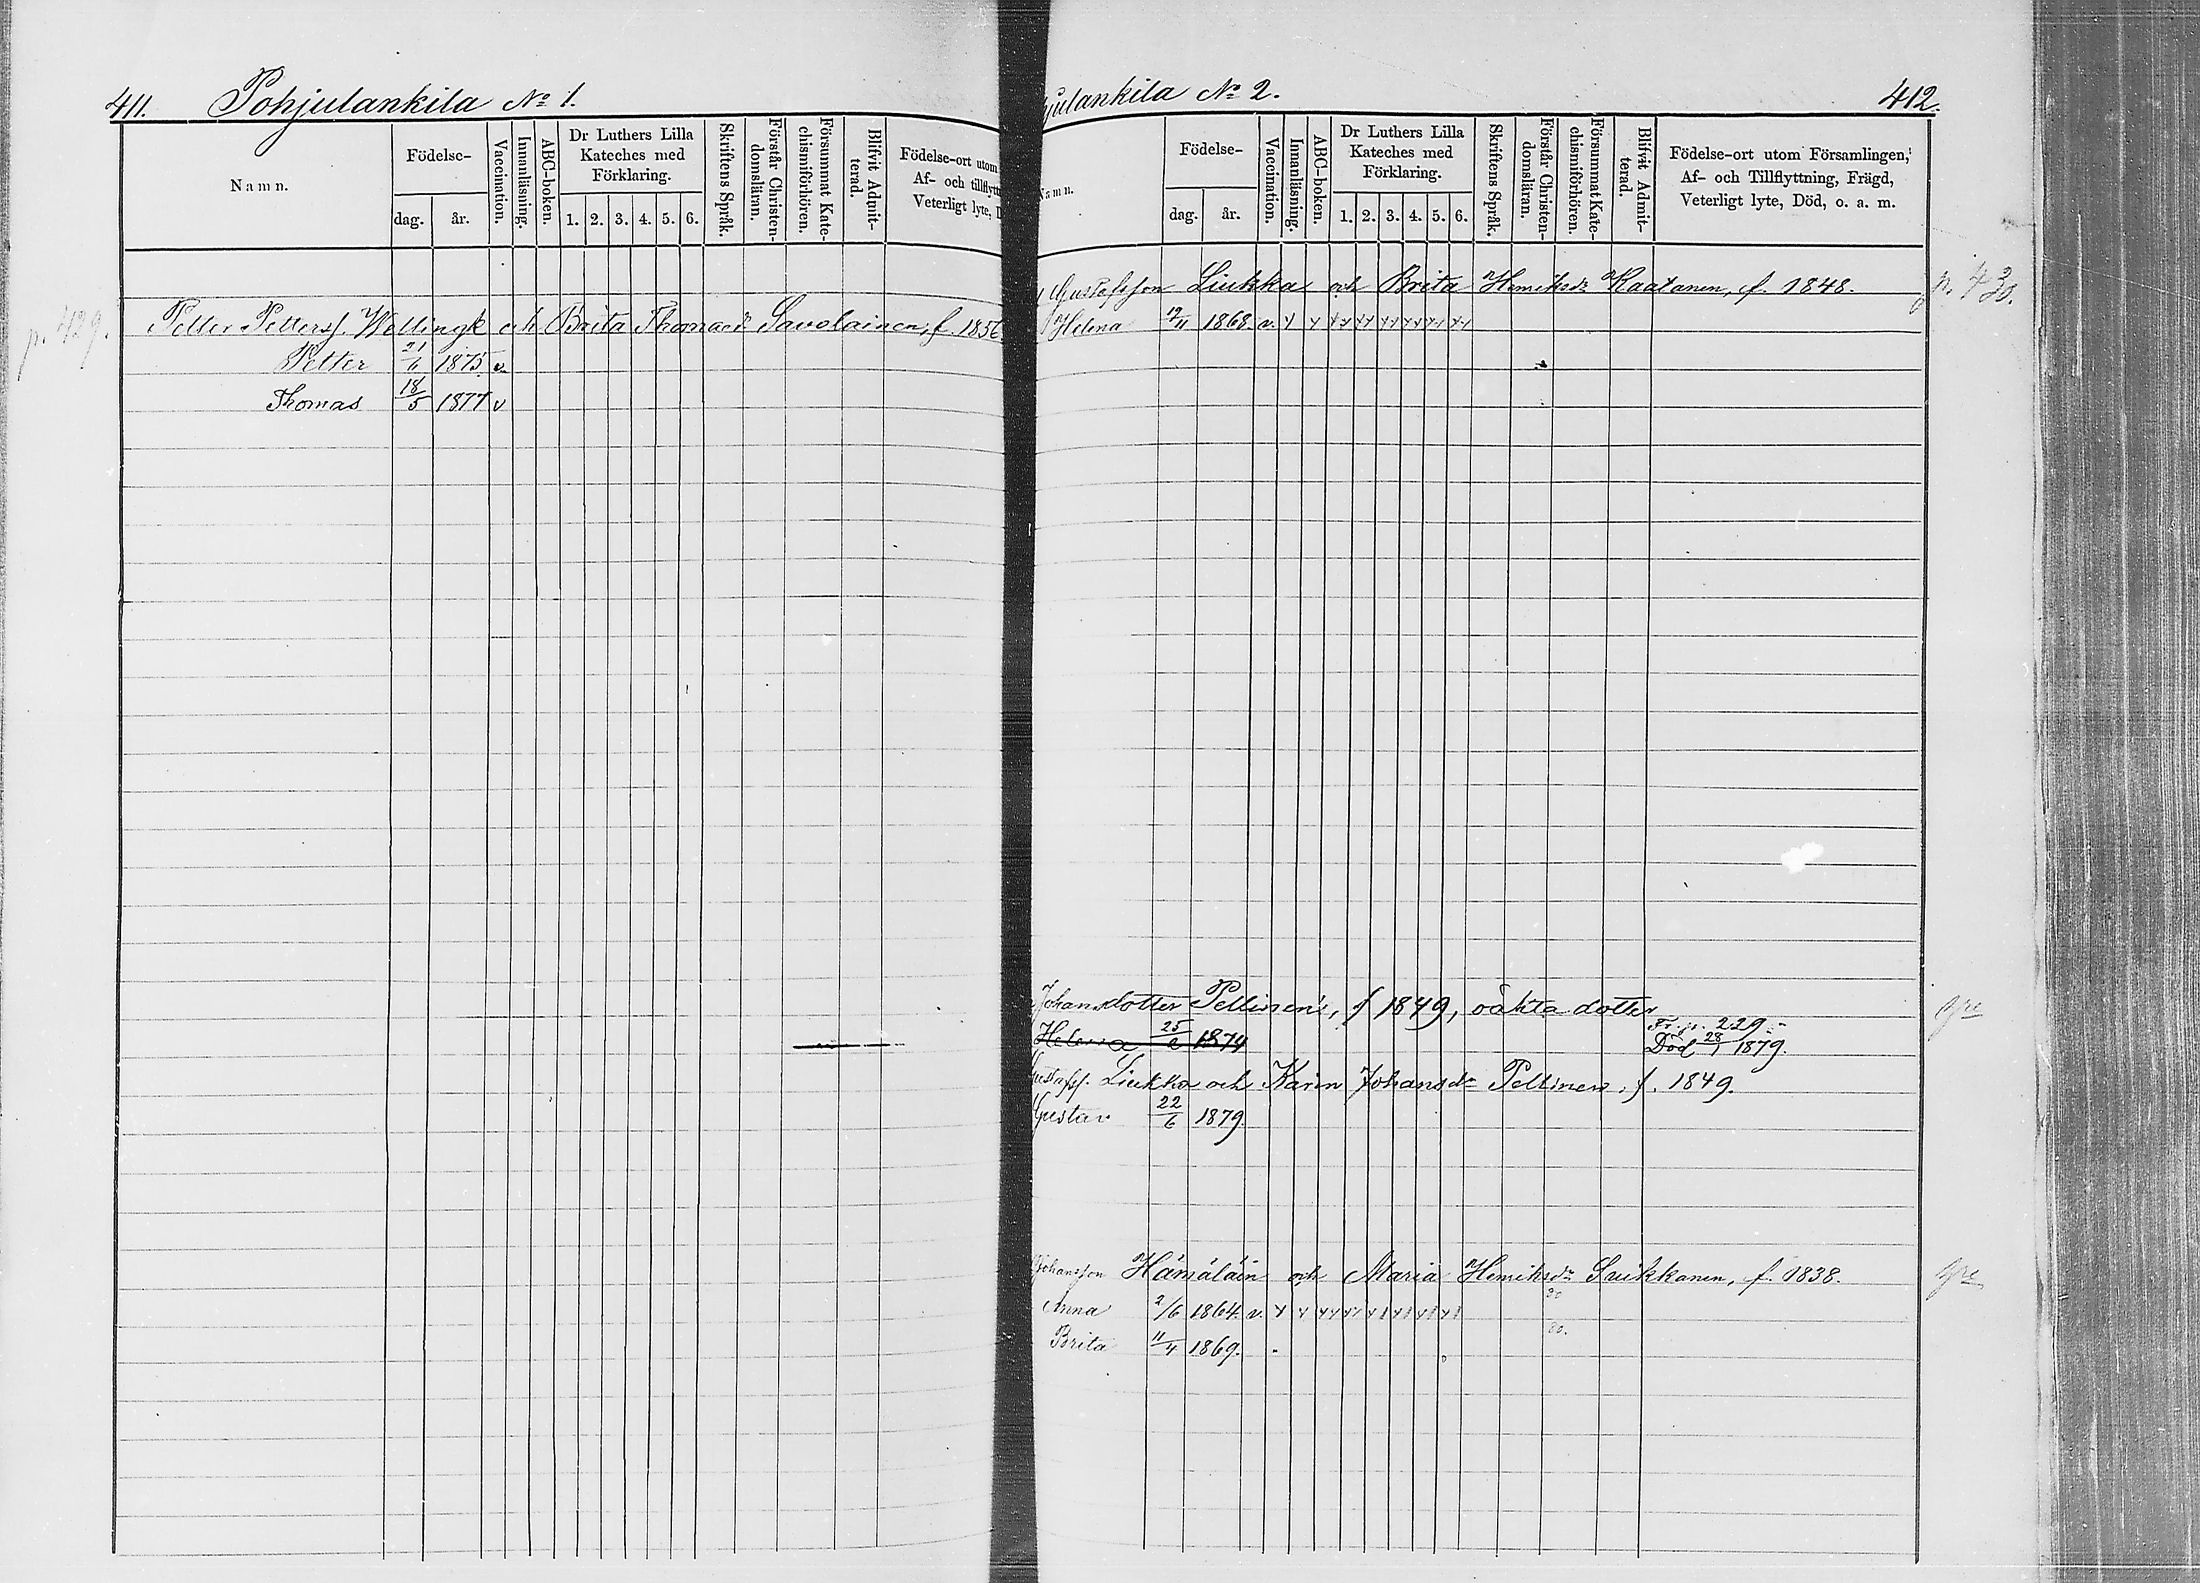 411. Pohjulankila No 1.
Namn.
Födelse-
dag.
år.
Vaccination.
Innanläsning.
ABC-boken.
Dr Luthers Lilla
Kateches med
Förklaring.
1. 2. 3. 4. 5. 6.
Skriftens Språk.
Förstår Christen-
domsläran.
Försummat Kate-
chismiförhören.
Blifvit Admit-
terad.
Födelse-ort utom
Af- och tillflytt
Veterligt lyte, D
p. 429.
Petter Petterss. Wellingk och Brita Thomaedr Savolainen, f. 1856
Petter 21/6 1875 v.
Thomas 18/5 1877 v
julankila No 2. 412.
Namn.
Födelse-
dag.
år.
Vaccination.
Innanläsning.
ABC-boken.
Dr Luthers Lilla
Kateches med
Förklaring.
1. 2. 3. 4. 5. 6.
Skriftens Språk.
Förstår Christen-
domsläran.
Försummat Kate-
chismiförhören.
Blifvit Admit-
terad.
Födelse-ort utom Församlingen,
Af- och Tillflyttning, Frägd,
Veterligt lyte, Död, o. a. m.
Gustafsson Liukka och Brita Henriksdr Kaatanen, f. 1848. p. 430.
Helena 1868. v.
Johansdotter Pellinen, f 1849, oäkta dotter
Fr. p. 229.
Helena 25/2 1874 Död 28/1 1879.
Gustafss. Liukka och Karin Johansdr Pellinen, f. 1849.
Gustav 22/6 1879
Johansson Hämäläin och Maria Henriksdr Suikkanen, f. 1838.
Anna 2/6 1864. v.
Brita 11/4 1869.